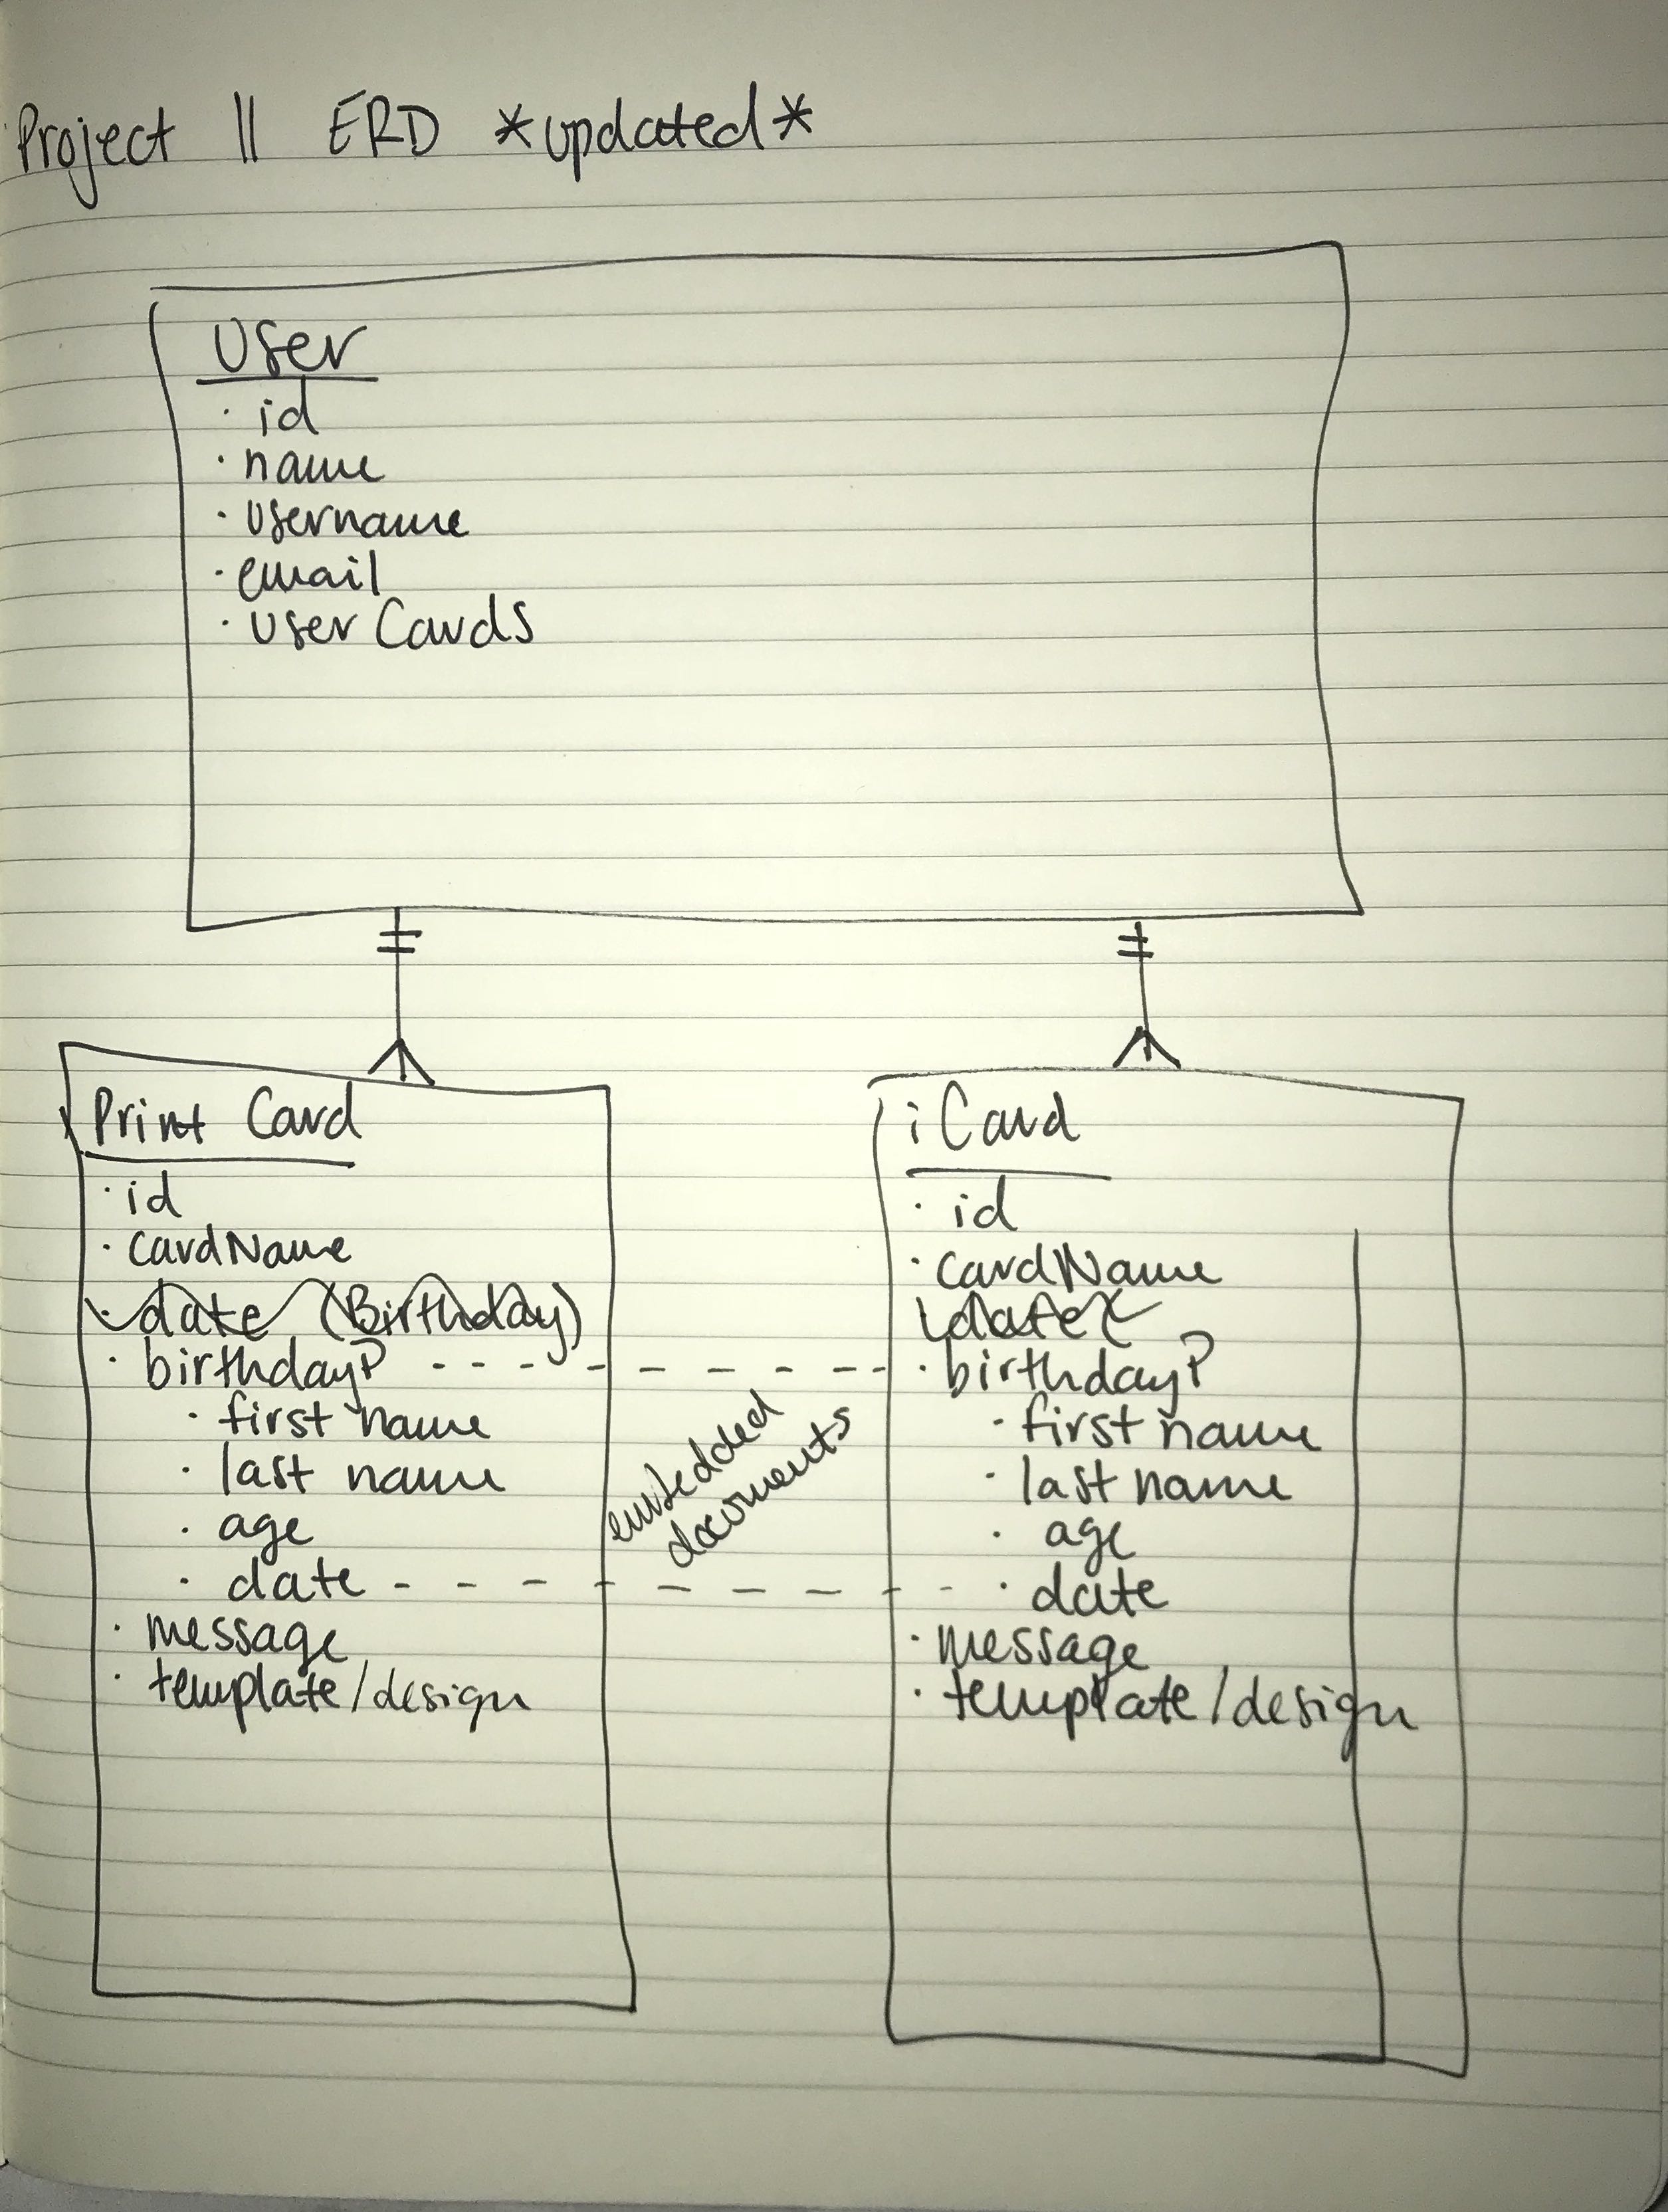 Project II ERD *updated*
User
· id
· name
· username
· email
· user Cards
Print Card
· id
· cardName
· date (Birthday)
· birthdayP
· first name
· last name
· age
· date
· message
· template/design
embedded
documents
iCard
· id
· cardName
· date
· birthdayP
· first name
· last name
· age
· date
· message
· template/design